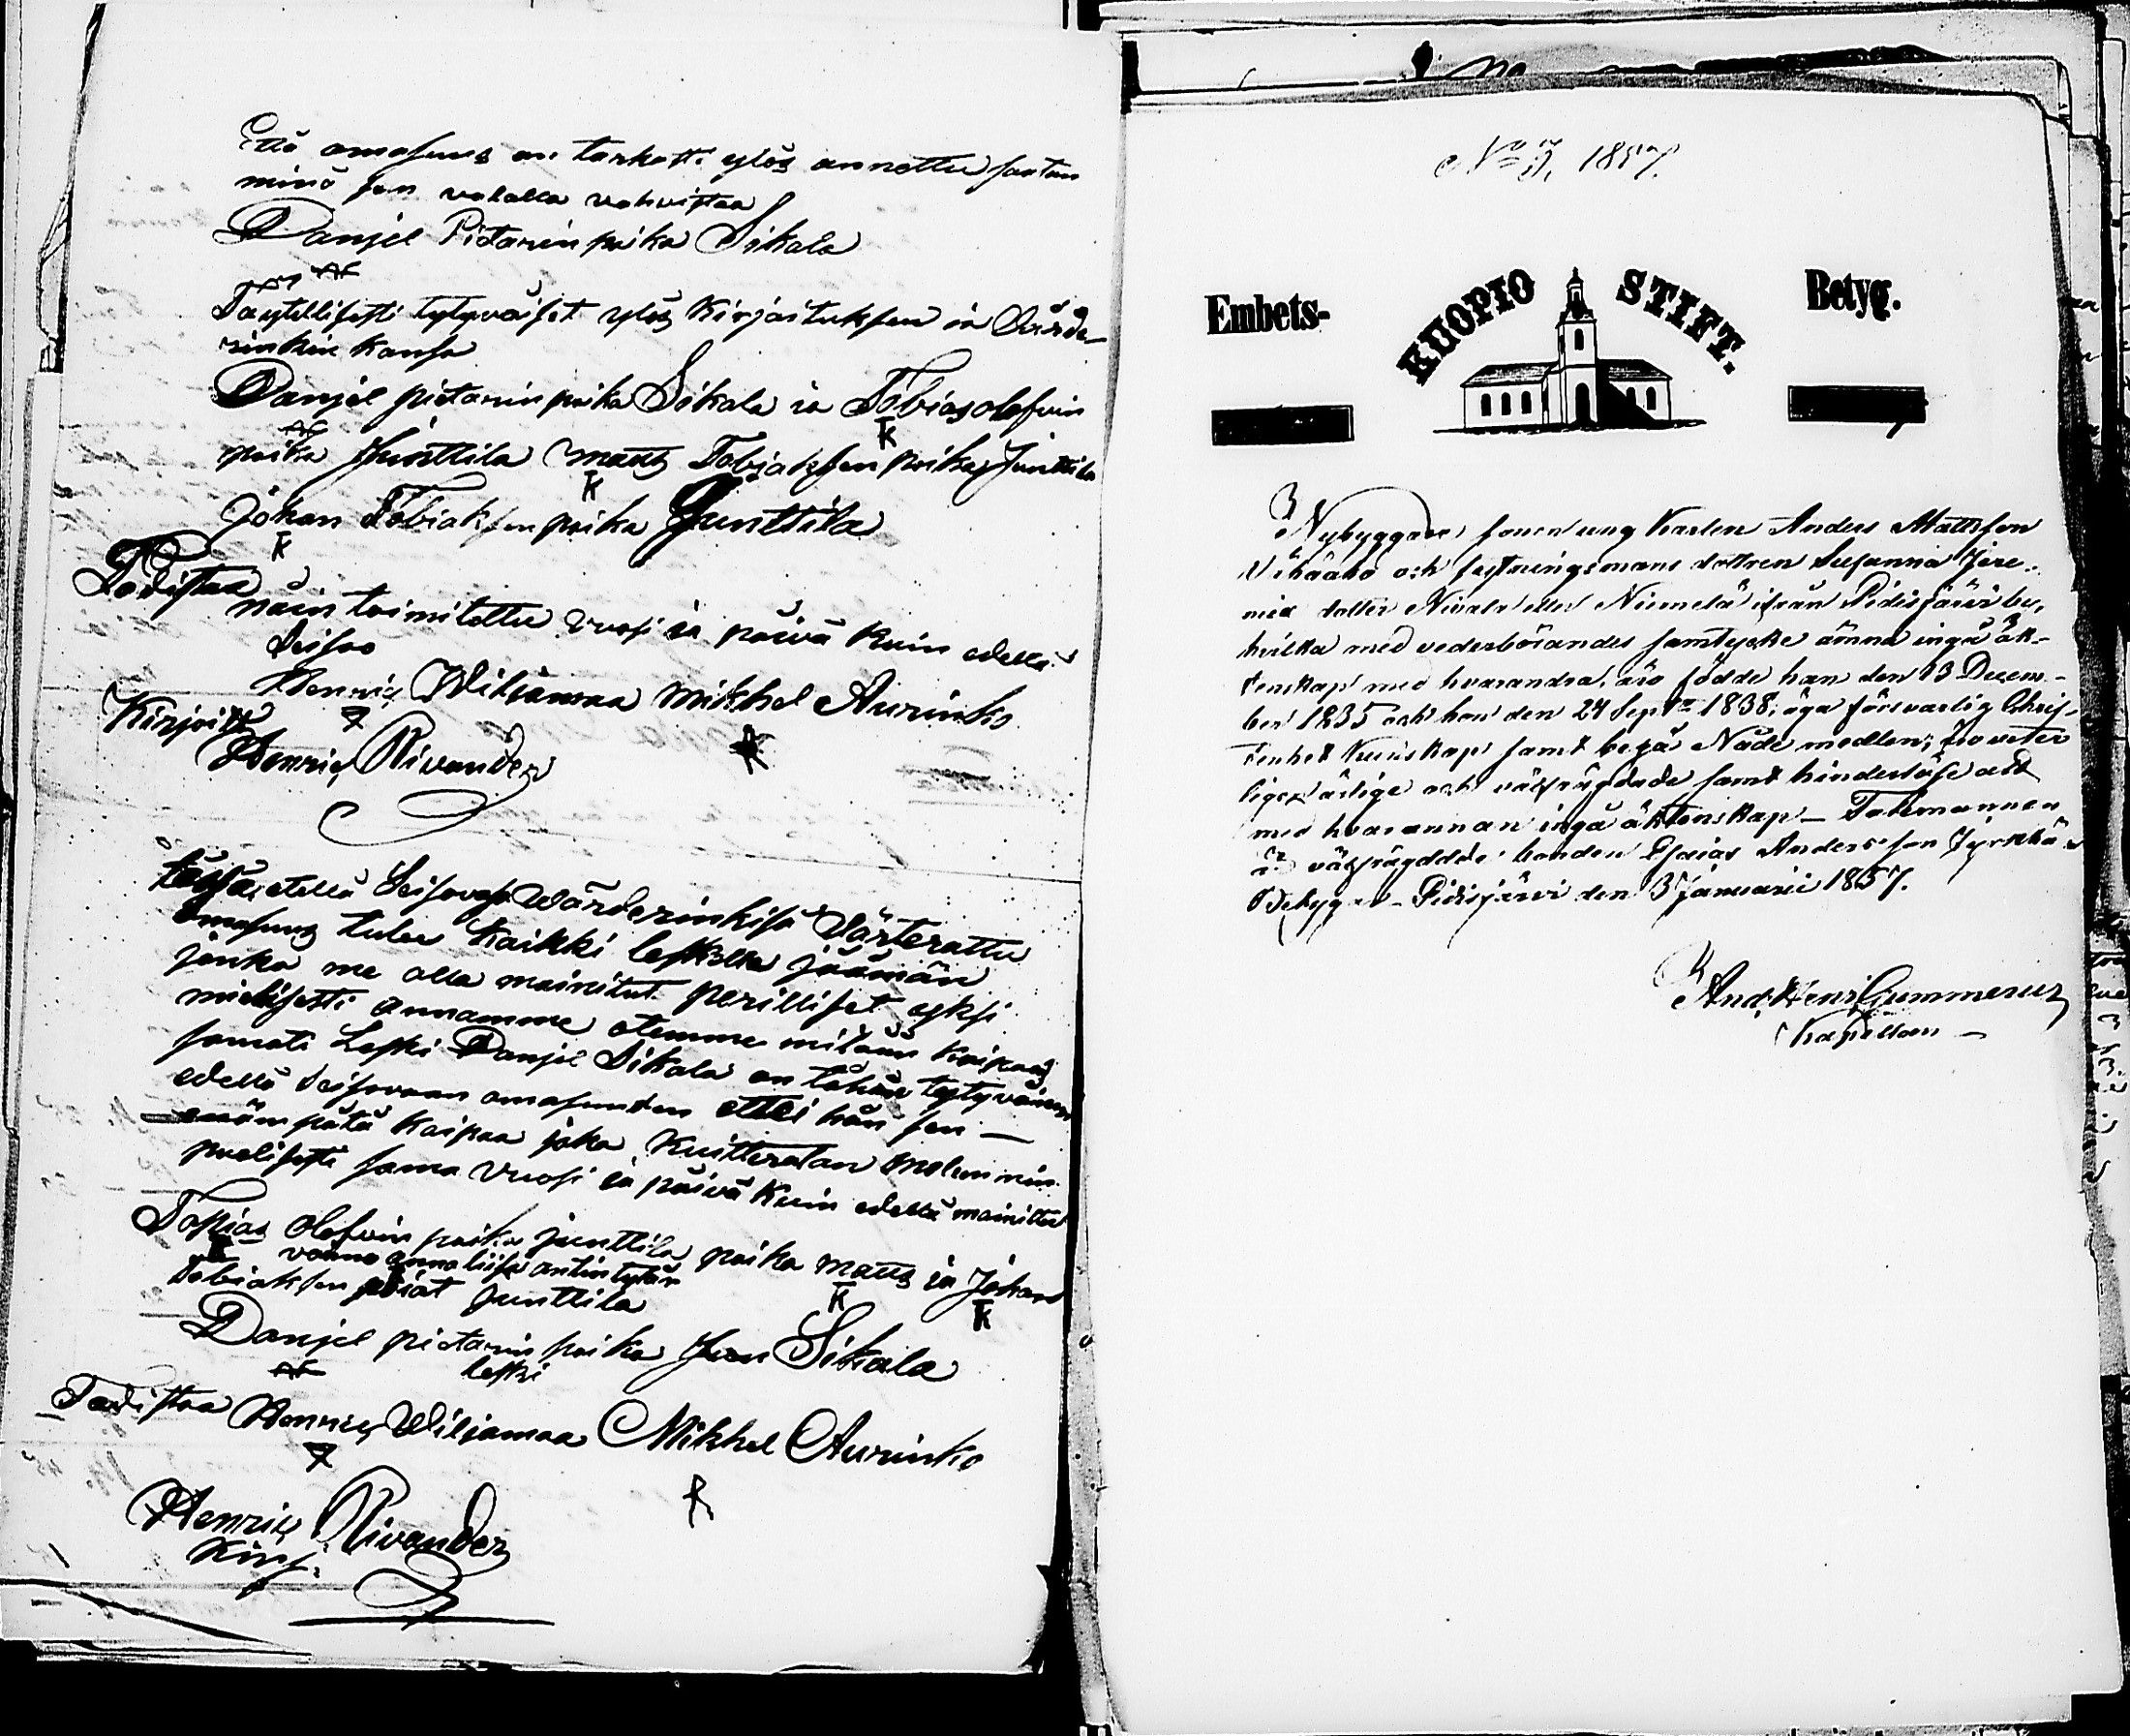 Että omasuus on tarkasti ylös annettu saatan
minä sen valalla vahvistaa
Danjel Pietarin poika Sikala
Täytellisesti tytyväiset ylös Kirjoituksen ja Värde-
rinkin kansa
Danjel pietarin poika Sikala ja Tobias olefvin
poika Junttila matts Tobiaksen poika Junttila
Johan Tobiaksen poika Junttila
Todistaa
näin toimitettu vuosi ja päivä kuin edellä
seisoo
Henric Wiljamaa Mikkel Aurinko
Kirjoitti
Henric Nivander
tässä etellä Seisovasa Wärderinkisä Värterattu
omasuus tulee Kaikki leskelle jäämän
jonka me alla mainitut perilliset yksi
mielisesti annamme otemme mitään kaipaa
samati Leski Danjel Sikala on tähän tytyväinen
edellä seisovaan omasuuten ettei hän sen
enämpätä Kaipaa joka Kuitteratan molemmin
puolisesti sama vuosi ja päivä Kuin edellä mainittu
Topias olefvin poika junttila poika matts ja Johan
vaimo anna liisa antin tytär
Tobiaksen poiat Junttila
Danjel pietarin poika Sikala
leski
Todistaa Henric Wiljamaa Mikkel Aurinko
Henric Nivander
Kirj:
No 3, 1857.
Embets- KUOPIO STIFT. Betyg.
Nybyggare sonen ung Karlen Anders Mattsson
och festningsmans dottren Susanna Jere-
mia dotter Nivala eller Niemelä ifrån Pidisjärvi by,
hvilka med vederbörandes samtycke ämna ingå äk-
tenskap med hvarandra, äro födde han den 13 Decem-
ber 1835 och hon den 24 Sept 1838; äga försvarlig Chris-
tenhet Kunskap samt begå Nåde medlen; äro veter
ligen ärlige och välfrägdade samt hinderlöse att
med hvarannan ingå äktenskap – Talemannen
är välfrägdade bonden Esaias Andersson Jyrkkä
Betygar – Pidisjärvi den 3 Januarii 1857.
And. Henr. Gummerus
Kapellan –